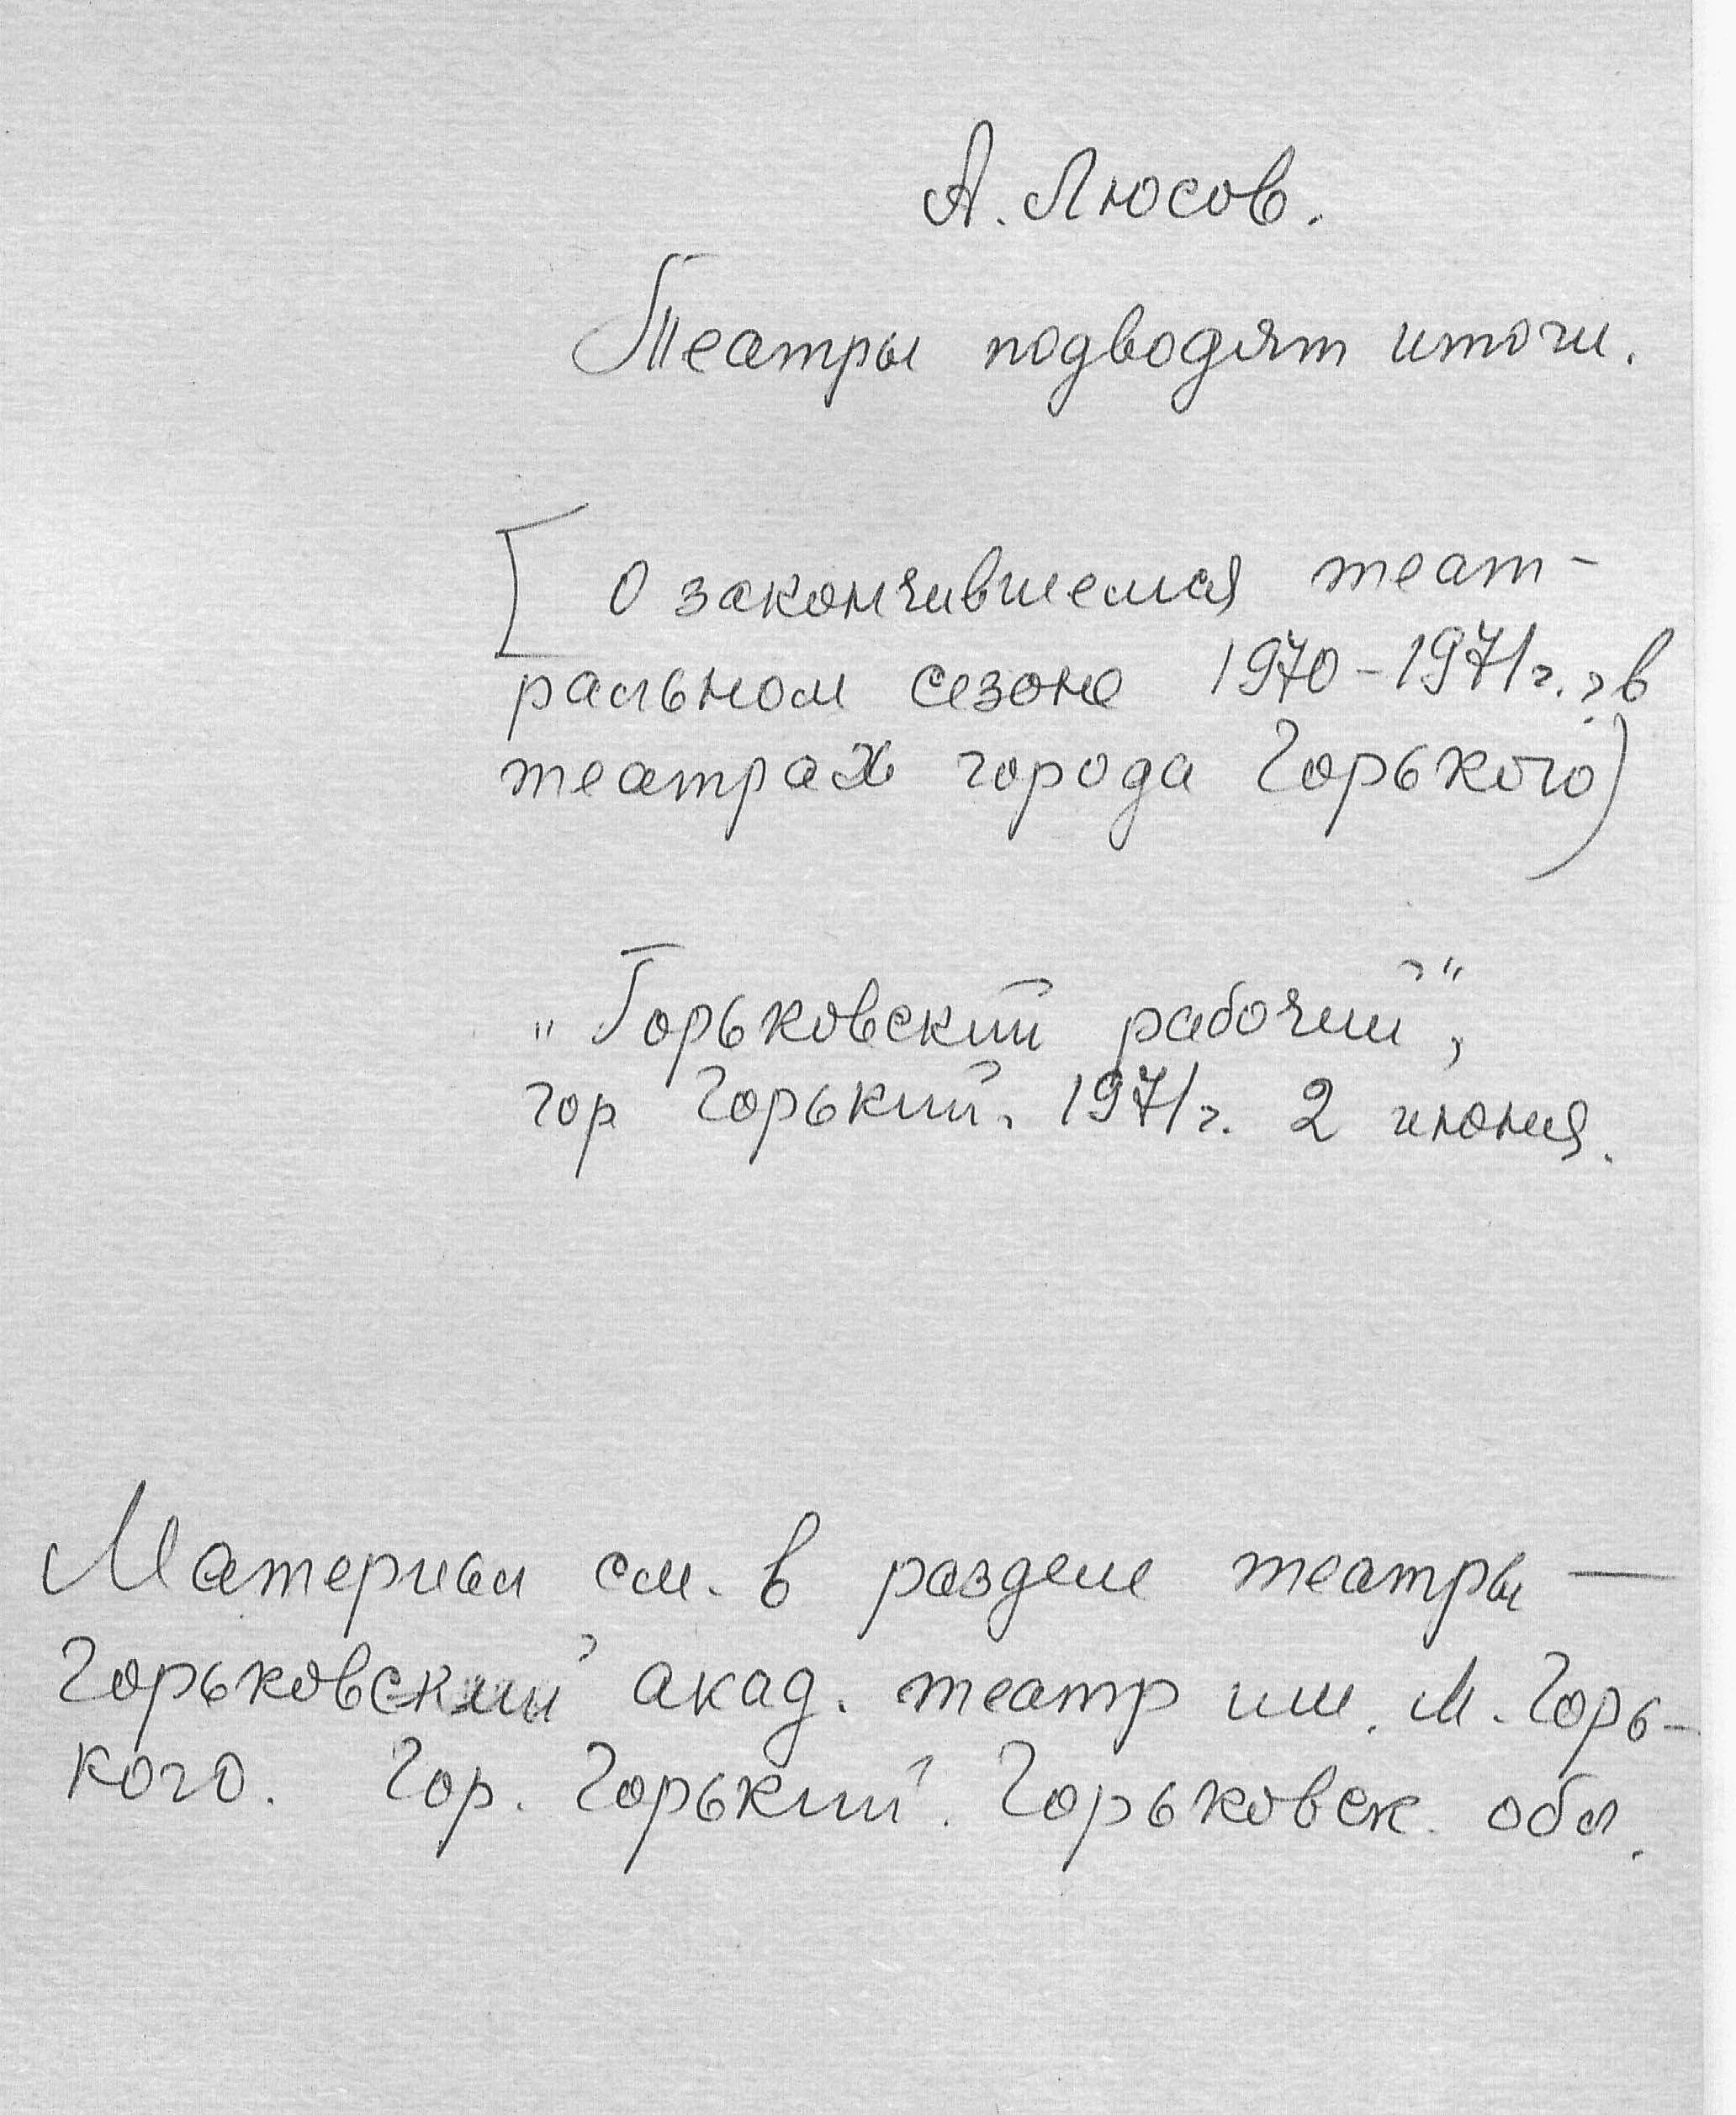 А. Люсов.
Театры подводят итоги.
[О закончившемся теат-
ральном сезоне 1970-1971г.г. в
театрах города Горького)
"Горьковский рабочий",
гор Горький. 1971г. 2 июня.
Материал см. в разделе театры —
Горьковский акад. театр им. М. Горь-
кого. Гор. Горький. Горьковск. обл.